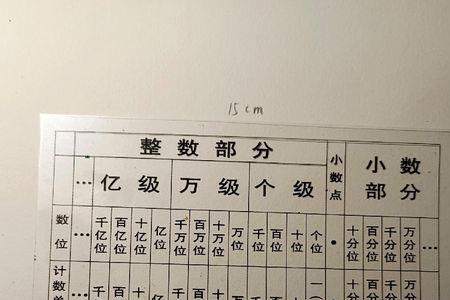 15cm
整数部分 小数点 小数部分
… 亿级 万级 个级
数位 … 千亿位 百亿位 十亿位 亿位 千万位 百万位 十万位 万位 千位 百位 十位 个位 • 十分位 百分位 千分位 万分位 …
计数单 千 百 十 千 百 十 千 百 十 一( 十分 百分 千分 万分